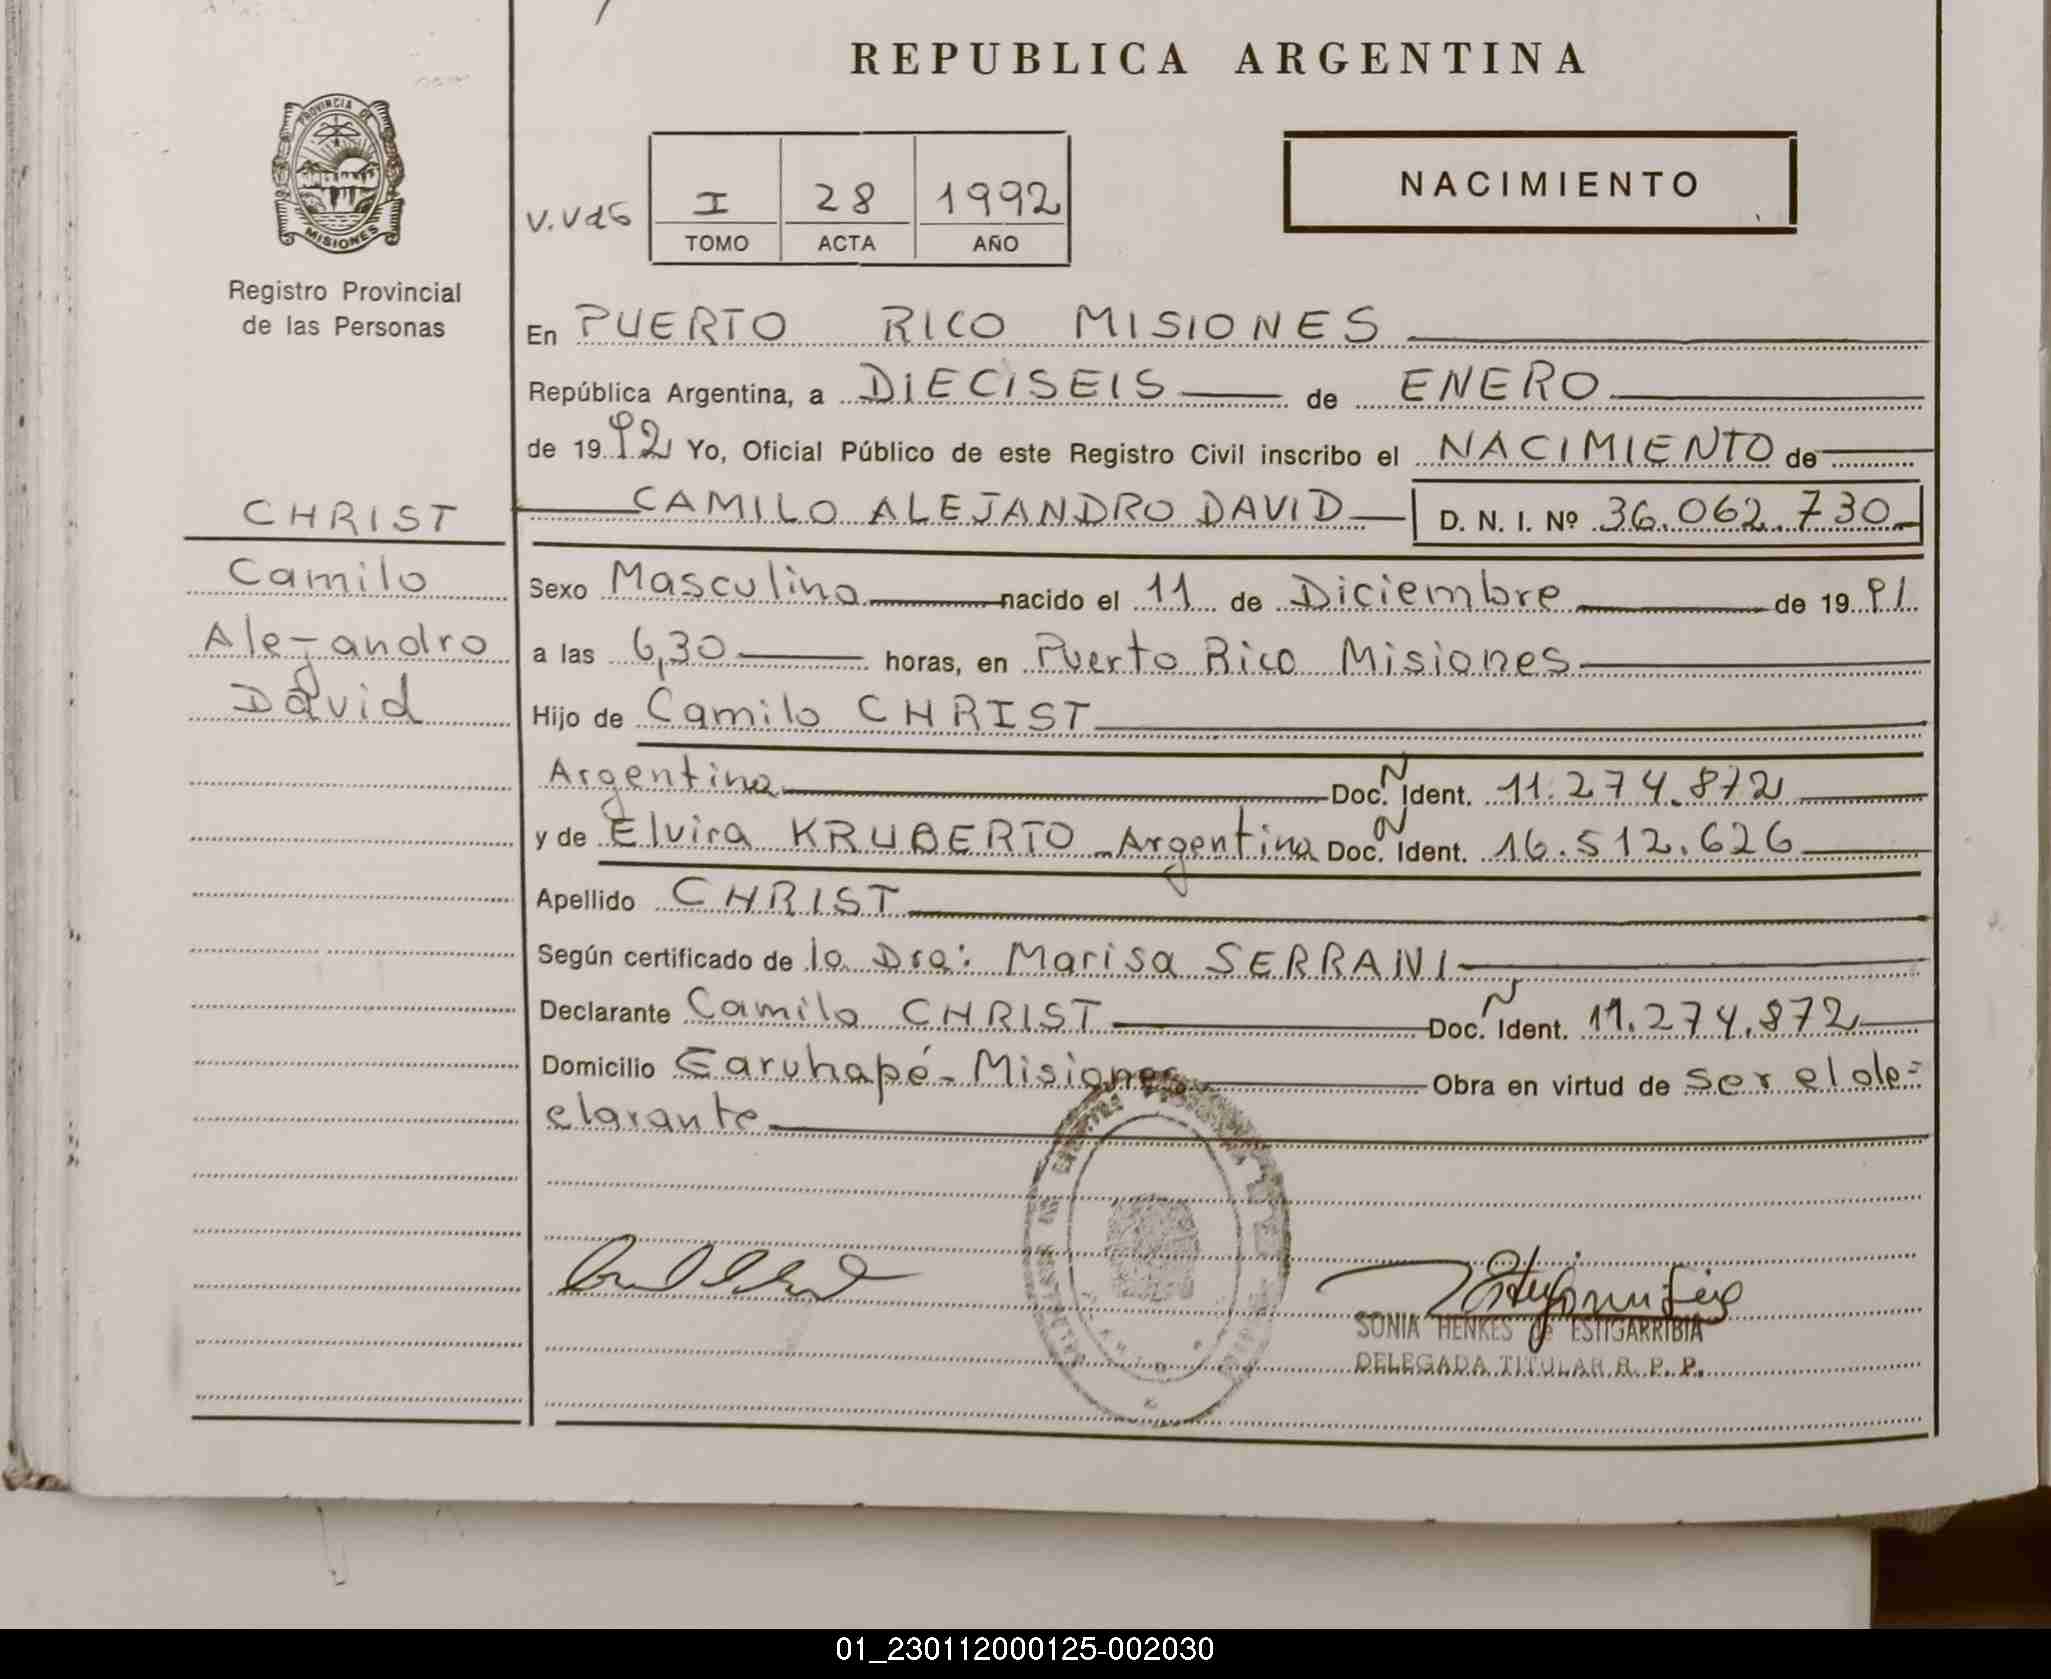 REPUBLICA ARGENTINA
PROVINCIA DE
MISIONES
Registro Provincial
de las Personas
NACIMIENTO
V.Vds I 28 1992
TOMO ACTA AÑO
En PUERTO RICO MISIONES
República Argentina, a DIECISEIS de ENERO
de 1992 Yo, Oficial Público de este Registro Civil inscribo el NACIMIENTO de
CAMILO ALEJANDRO DAVID D. N. I. Nº 36.062.730
CHRIST
Camilo
Alejandro
David
Sexo Masculino nacido el 11 de Diciembre de 1991
a las 6,30 horas, en Puerto Rico Misiones
Hijo de Camilo CHRIST
Argentina Doc. N Ident. 11.274.872
y de Elvira KRUBERTO - Argentina Doc. N Ident. 16.512.626
Apellido CHRIST
Según certificado de la Dra: Marisa SERRANI
Declarante Camilo CHRIST Doc. N Ident. 11.274.872
Domicilio Garuhapé - Misiones Obra en virtud de ser el de=
clarante
SONIA HENKES de ESTIGARRIBIA
DELEGADA TITULAR R. P. P.
01_230112000125-002030